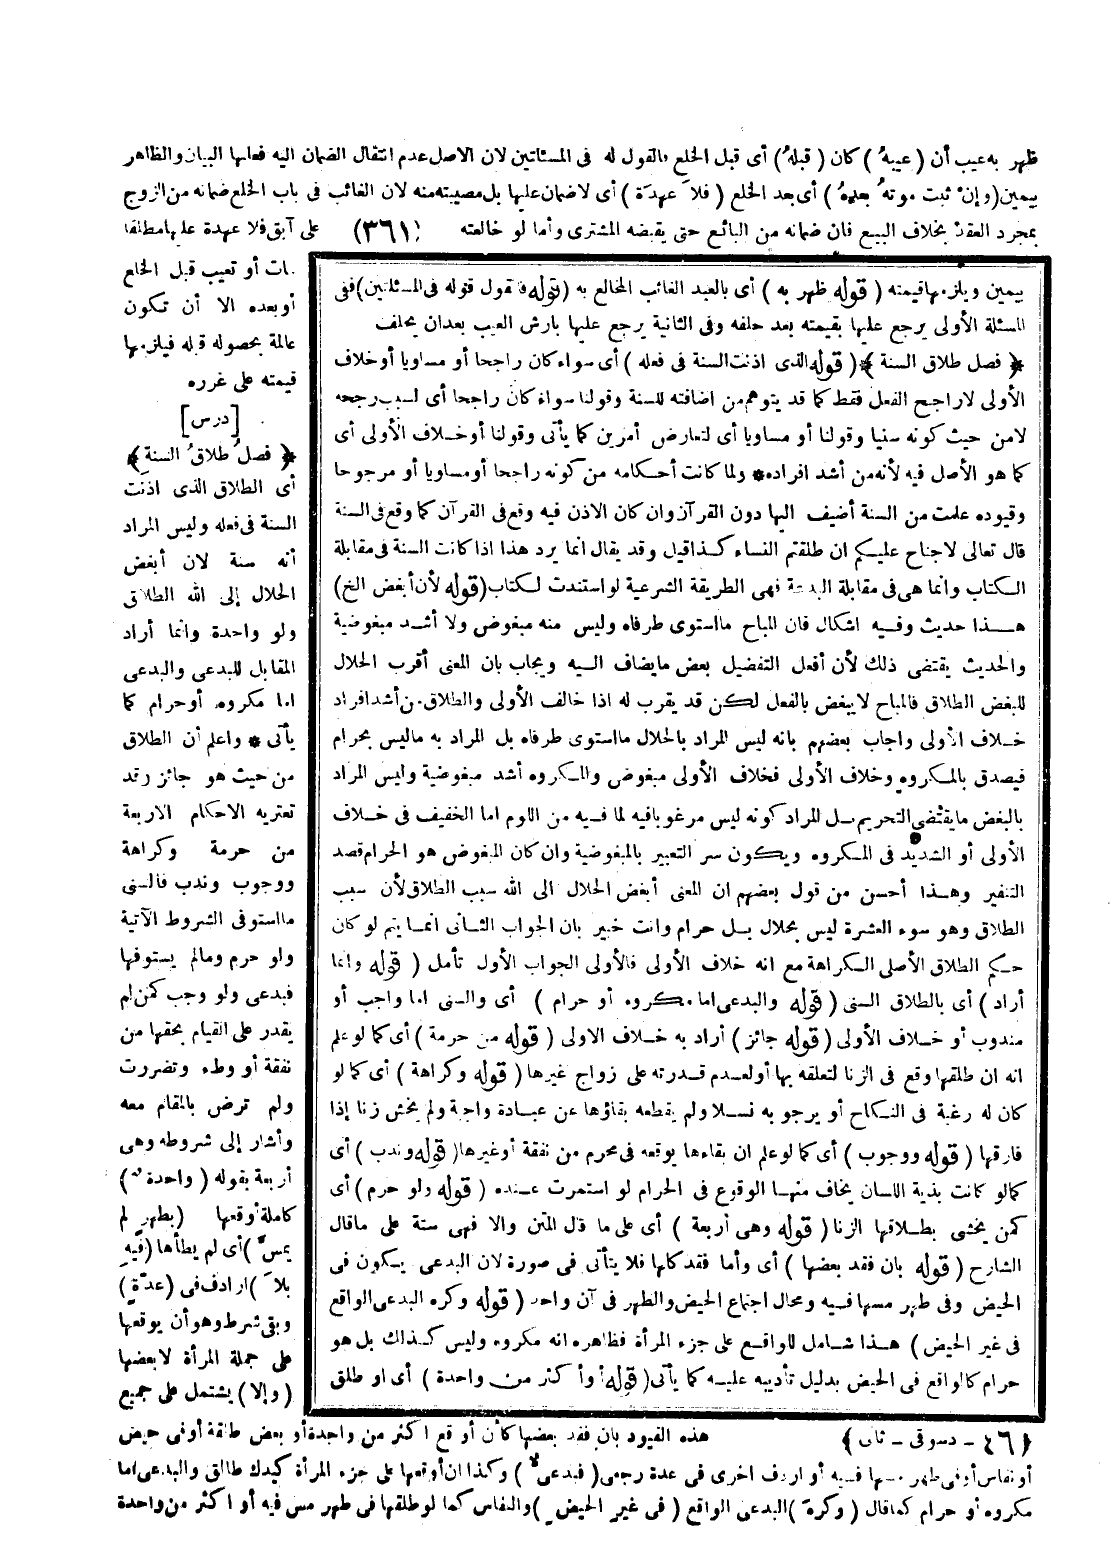 ظهر به عيب أن (عيبه) كان (قبله) أى قبل الخلع فالقول له فى المسئلتين لان الاصل عدم انتقال الضمان اليه فعليها البيان والظاهر
بيمين (وإن ثبت موته بعده) أى بعد الخلع (فلا عهدة) أى لا ضمان عليها بل مصيبته منه لان الغائب فى باب الخلع ضمانه من الزوج
بمجرد العقد بخلاف البيع فان ضمانه من البائع حتى يقبضه المشترى وأما لو خالعته (٣٦١) على آبق فلا عهدة عليها مطلقا
مات أو تعيب قبل الخلع
أو بعده الا أن تكون
عالمة بحصوله قبله فيلزمها
قيمته على غرره
[درس]
﴿ فصل طلاق السنة ﴾
أى الطلاق الذى اذنت
السنة فى فعله وليس المراد
أنه سنة لان أبغض
الحلال إلى الله الطلاق
ولو واحدة وانما أراد
المقابل للبدعى والبدعى
اما مكروه أو حرام كما
يأتى * واعلم أن الطلاق
من حيث هو جائز وقد
تعتريه الاحكام الاربعة
من حرمة وكراهة
ووجوب وندب فالسنى
ما استوفى الشروط الآتية
ولو حرم ومالم يستوفها
فبدعى ولو وجب كمن لم
يقدر على القيام بحقها من
نفقة أو وطء وتضررت
ولم ترض بالمقام معه
وأشار إلى شروطه وهى
أربعة بقوله (واحدة)
كاملة أوقعها (بطهر لم
يمس) أى لم يطأها (فيه
بلا) ارداف فى (عدة)
وبقى شرط وهو أن يوقعها
على جملة المرأة لا بعضها
(وإلا) يشتمل على جميع
هذه القيود بان فقد بعضها كأن أوقع اكثر من واحدة أو بعض طلقة أو فى حيض
أو نفاس أو فى طهر مسها فيه أو اردف اخرى فى عدة رجعى (فبدعى) وكذا ان أوقعها على جزء المرأة كيدك طالق والبدعى اما
مكروه أو حرام كما قال (وكره) البدعى الواقع (فى غير الحيض) والنفاس كما لو طلقها فى طهر مس فيه أو اكثر من واحدة
بيمين ويلزمها قيمته (قوله ظهر به) أى بالعبد الغائب المخالع به (قوله فالقول قوله فى المسئلتين) ففى
المسئلة الأولى يرجع عليها بقيمته بعد حلفه وفى الثانية يرجع عليها بارش العيب بعد ان يحلف
﴿ فصل طلاق السنة ﴾ (قوله الذى اذنت السنة فى فعله) أى سواء كان راجحا أو مساويا أو خلاف
الأولى لا راجح الفعل فقط كما قد يتوهم من اضافته للسنة وقولنا سواء كان راجحا أى لسبب رجحه
لا من حيث كونه سنيا وقولنا أو مساويا أى لتعارض أمرين كما يأتى وقولنا أو خلاف الأولى أى
كما هو الأصل فيه لأنه من أشد افراده * ولما كانت أحكامه من كونه راجحا أو مساويا أو مرجوحا
وقيوده علمت من السنة أضيف اليها دون القرآن وان كان الاذن فيه وقع فى القرآن كما وقع فى السنة
قال تعالى لا جناح عليكم ان طلقتم النساء كذا قيل وقد يقال انما يرد هذا اذا كانت السنة فى مقابلة
الكتاب وانما هى فى مقابلة البدعة فهى الطريقة الشرعية لو استندت لكتاب (قوله لأن أبغض الخ)
هذا حديث وفيه اشكال فان المباح ما استوى طرفاه وليس منه مبغوض ولا أشد مبغوضية
والحديث يقتضى ذلك لأن أفعل التفضيل بعض ما يضاف اليه ويجاب بان المعنى أقرب الحلال
للبغض الطلاق فالمباح لا يبغض بالفعل لكن قد يقرب له اذا خالف الأولى والطلاق من أشد افراد
خلاف الأولى واجاب بعضهم بانه ليس المراد بالحلال ما استوى طرفاه بل المراد به ما ليس بحرام
فيصدق بالمكروه وخلاف الأولى فخلاف الأولى مبغوض والمكروه أشد مبغوضية وليس المراد
بالبغض ما يقتضى التحريم بل المراد كونه ليس مرغوبا فيه لما فيه من اللوم اما الخفيف فى خلاف
الأولى أو الشديد فى المكروه ويكون سر التعبير بالمبغوضية وان كان المبغوض هو الحرام قصد
التنفير وهذا أحسن من قول بعضهم ان المعنى أبغض الحلال الى الله سبب الطلاق لأن سبب
الطلاق وهو سوء العشرة ليس بحلال بل حرام وانت خبير بان الجواب الثانى انما يتم لو كان
حكم الطلاق الأصلى الكراهة مع انه خلاف الأولى فالأولى الجواب الأول تأمل (قوله وانما
أراد) أى بالطلاق السنى (قوله والبدعى اما مكروه أو حرام) أى والسنى اما واجب أو
مندوب أو خلاف الأولى (قوله جائز) أراد به خلاف الاولى (قوله من حرمة) أى كما لو علم
انه ان طلقها وقع فى الزنا لتعلقه بها أو لعدم قدرته على زواج غيرها (قوله وكراهة) أى كما لو
كان له رغبة فى النكاح أو يرجو به نسلا ولم يقطعه بقاؤها عن عبادة واجبة ولم يخش زنا إذا
فارقها (قوله ووجوب) أى كما لو علم ان بقاءها يوقعه فى محرم من نفقة أو غيرها (قوله وندب) أى
كما لو كانت بذية اللسان يخاف منها الوقوع فى الحرام لو استمرت عنده (قوله ولو حرم) أى
كمن يخشى بطلاقها الزنا (قوله وهى أربعة) أى على ما قال المتن والا فهى ستة على ما قال
الشارح (قوله بان فقد بعضها) أى وأما فقد كلها فلا يتأتى فى صورة لان البدعى يكون فى
الحيض وفى طهر مسها فيه ومحال اجتماع الحيض والطهر فى آن واحد (قوله وكره البدعى الواقع
فى غير الحيض) هذا شامل للواقع على جزء المرأة فظاهره انه مكروه وليس كذلك بل هو
حرام كالواقع فى الحيض بدليل تأديبه عليه كما يأتى (قوله أو أكثر من واحدة) أى أو طلق
(٤٦ - دسوقى - ثانى)